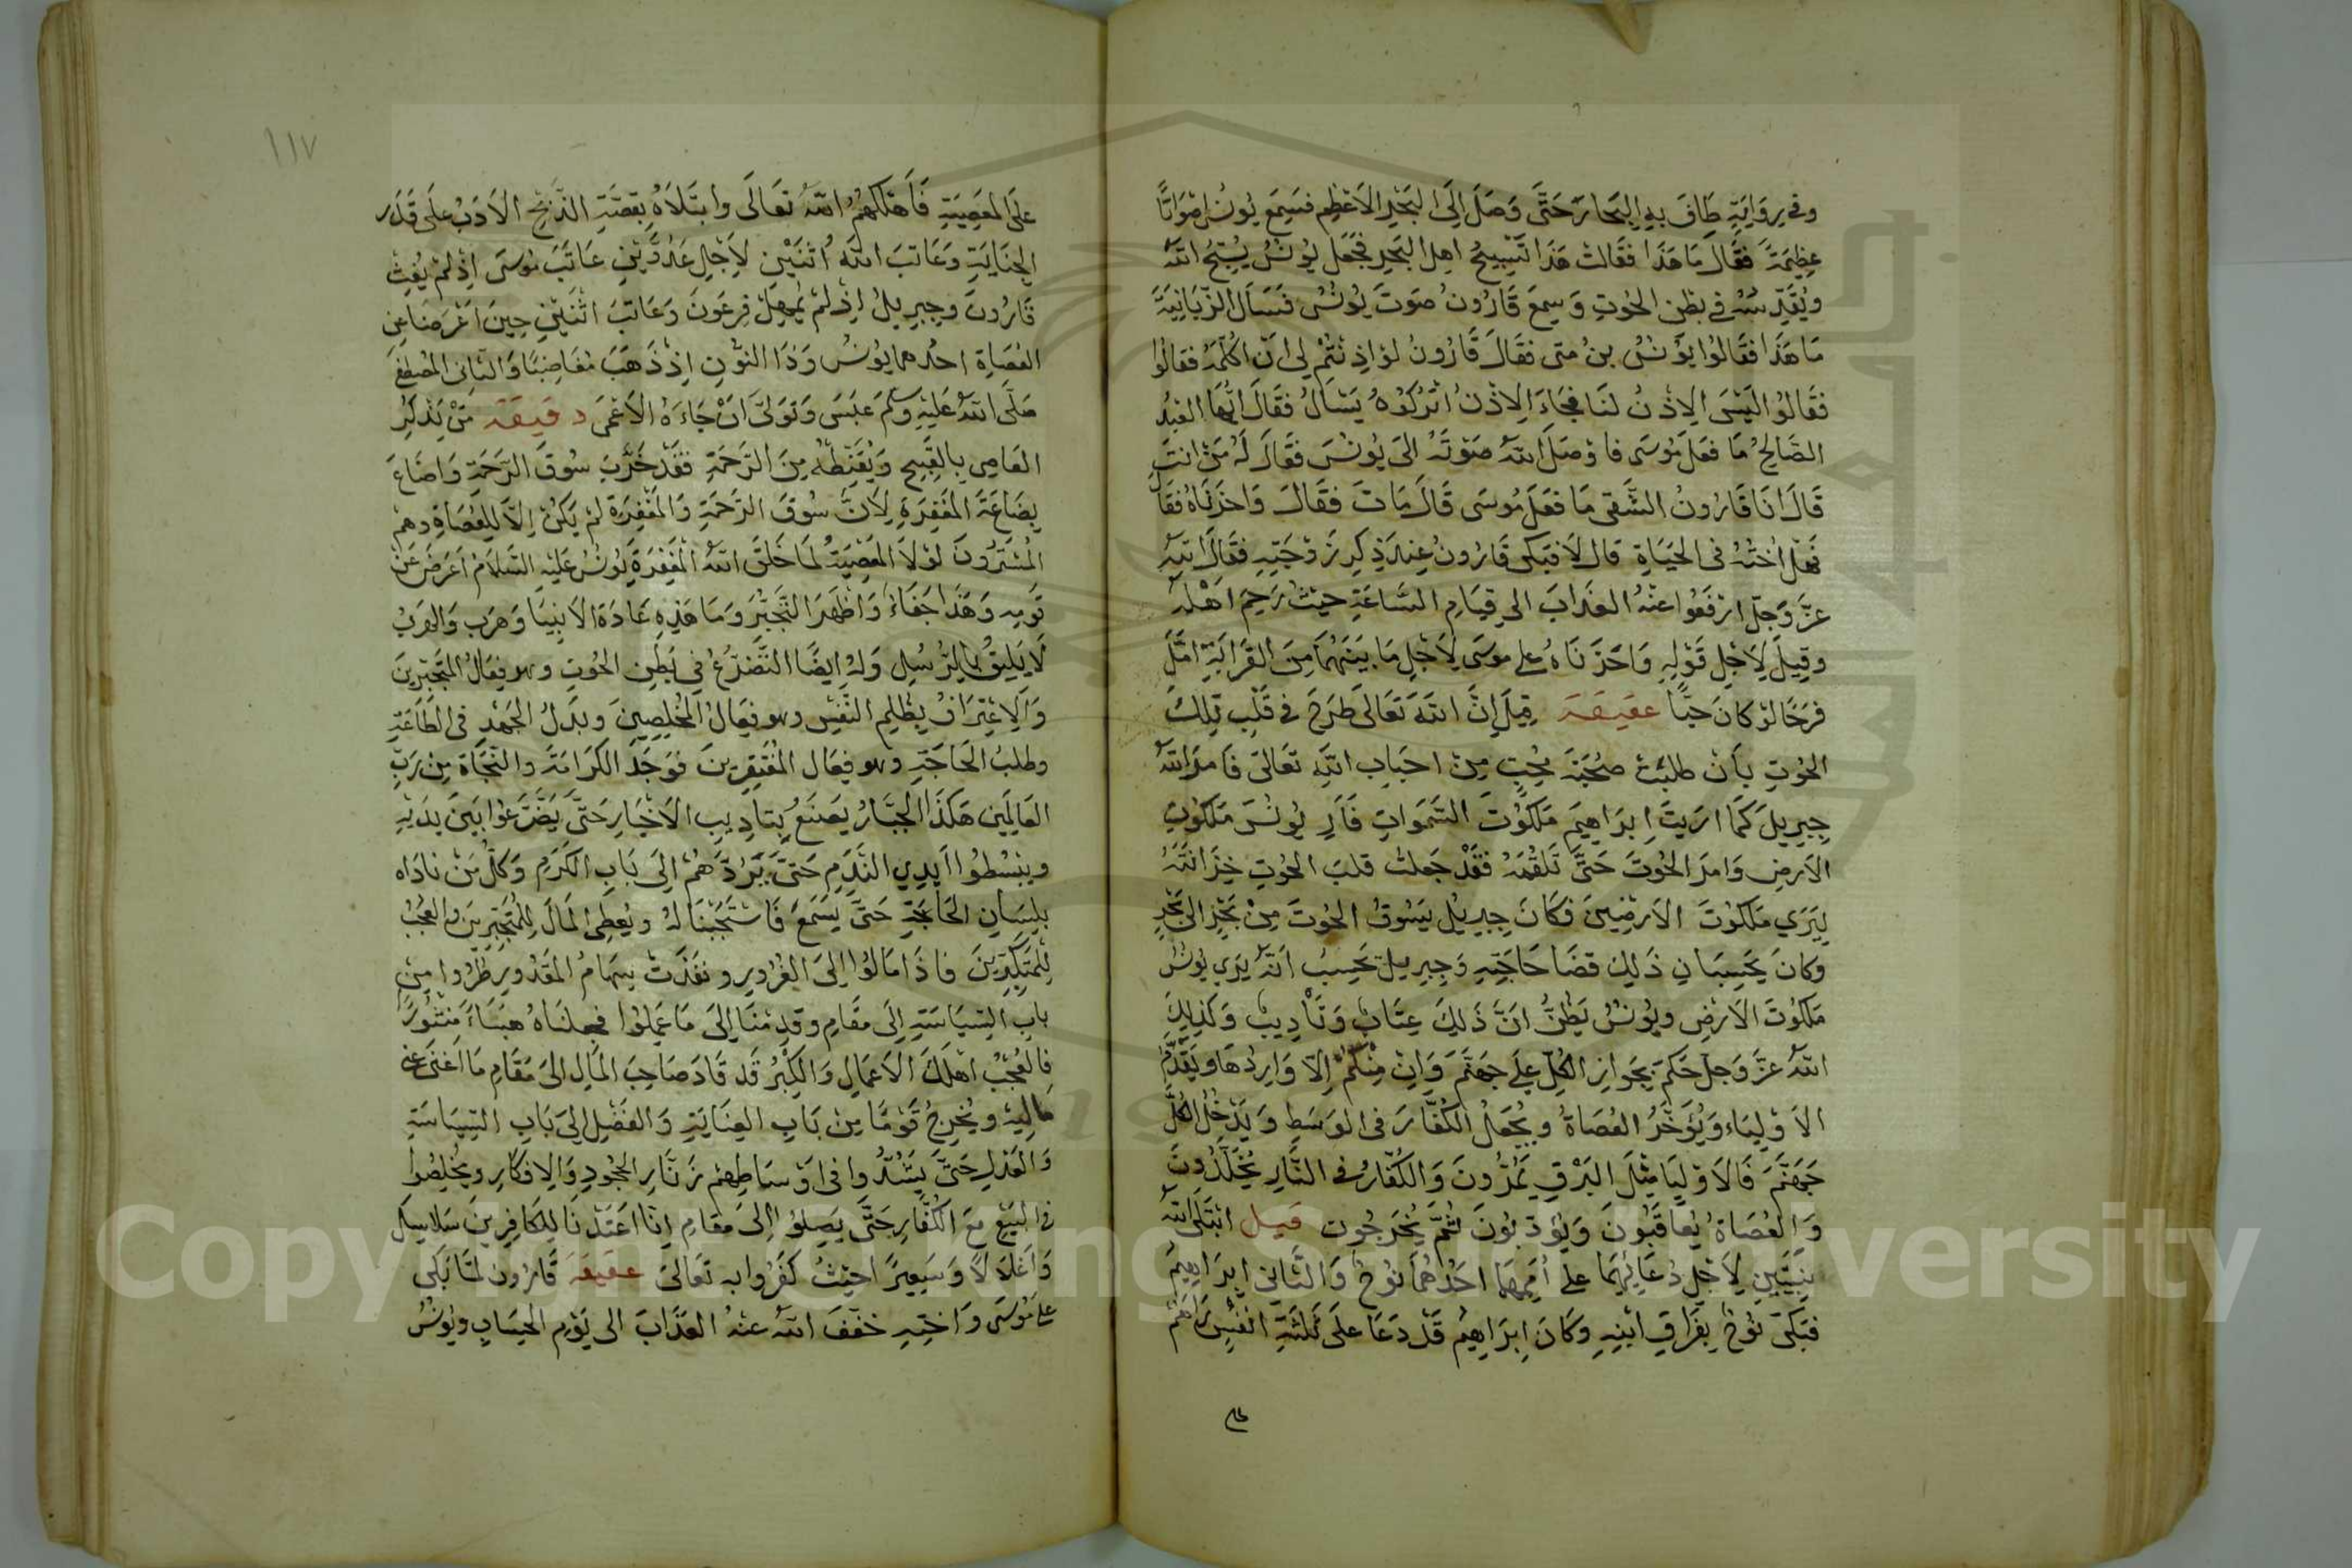 وفي رواية طاف به البحار حتى وصل الى البحر الاعظم فسمع يونس اصواتا
عظيمة فقال ما هذا فقالت هذا تسبيح اهل البحر فجعل يونس يسبح الله
ويقدسه في بطن الحوت وسمع قارون صوت يونس فسال الزبانية
ما هذا فقالوا يونس بن متى فقال قارون لو اذنتم لي ان اكلمه فقالوا
فقالوا ليس الاذن لنا فجاء الاذن اتركوه يسال فقال ايها العبد
الصالح ما فعل موسى فاوصل الله صوته الى يونس فقال له من انت
قال انا قارون الشقي ما فعل موسى قال مات فقال واحزناه فقال
فهل اخته في الحياة قال لا فبكى قارون عند ذكر زوجته فقال الله
عز وجل ارفعوا عنه العذاب الى قيام الساعة حيث رحم اهله
وقيل لاجل قوله واحزناه على موسى لاجل ما بينهما من القرابة امثل
فرحا لو كان حيا عقيقة قيل ان الله تعالى طرح في قلب تلك
الحوت بان طلبت صحبة محب من احباب الله تعالى فامر الله
جبريل كما اريت ابراهيم ملكوت السموات فار يونس ملكوت
الارض وامر الحوت حتى تلقمه فقد جعلت قلب الحوت خزانته
ليرى ملكوت الارضين فكان جبريل يسوق الحوت من بحر الى بحر
وكان يحسبان ذلك قضا حاجته وجبريل يحسب انه يري يونس
ملكوت الارض ويونس يظن ان ذلك عتاب وتاديب وكذلك
الله عز وجل حكم بجواز الكل على جهنم وان منكم الا واردها ويقدم
الاولياء ويؤخر العصاة ويجعل الكفار في الوسط ويدخل الكل
جهنم فالاوليا مثل البرق يمرون والكفار في النار يخلدون
والعصاة يعاقبون ويؤدبون ثم يخرجون قيل ابتلى الله
نبيين لاجل دعائهما على اممهما احدهما نوح والثاني ابراهيم
فبكى نوح بفراق ابنه وكان ابراهيم قد دعا على ثلثة انفس راهم
١١٧
على المعصية فاهلكهم الله تعالى وابتلاه بقصة الذبح الادب على قدر
الجناية وعاتب الله اثنين لاجل عدوين عاتب موسى اذ لم يغث
قارون وجبريل اذ لم يمهل فرعون وعاتب اثنين حين اعرضا عن
العصاة احدهما يونس وذا النون اذ ذهب مغاضبا والثاني المصطفى
صلى الله عليه وسلم عبس وتولى ان جاءه الاعمى دقيقة من يذكر
العاصي بالقبيح ويقنطه من الرحمة فقد خرب سوق الرحمة واضاع
بضاعة المغفرة لان سوق الرحمة والمغفرة لم يكن الا للعصاة وهم
المشترون لولا المعصية لما خلق الله المغفرة يونس عليه السلام اعرض عن
قومه وهذا جفاء واظهر التجبر وما هذه عادة الانبيا وهرب والهرب
لا يليق بالرسل وله ايضا التضرع في بطن الحوت وهو فعال المتجبرين
والاعتراف بظلم النفس وهو فعال المخلصين وبذل الجهد في الطاعة
وطلب الحاجة وهو فعال المفتقرين فوجد الكرامة والنجاة من رب
العالمين هكذا الجبار يصنع بتاديب الاخيار حتى يتضرعوا بين يديه
ويبسطوا ايدي الندم حتى يردهم الى باب الكرم وكل من ناداه
بلسان الحاجة حتى يسمع فاستجبنا له ويعطى المال للمتجبرين والعجب
للمتكبرين فاذا مالوا الى الغرور ونفذت سهام المقدور طردوا من
باب السياسة الى مقام وقدمنا الى ما عملوا فجعلناه هباء منثورا
فالعجب اهلك الاعمال والكبر قد قاد صاحب المال الى مقام ما اغنى عني
ماليه ويخرج قوما من باب العناية والفضل الى باب السياسة
والعدل حتى يشدوا في اوساطهم زنار الجحود والافكار ويخلصوا
في البيع مع الكفار حتى يصلوا الى مقام انا اعتدنا للكافرين سلاسل
واغلالا وسعيرا حيث كفروا به تعالى عقيقة قارون لما بكى
على موسى واخته خفف الله عنه العذاب الى يوم الحساب ويونس
Copy right © King Saud University